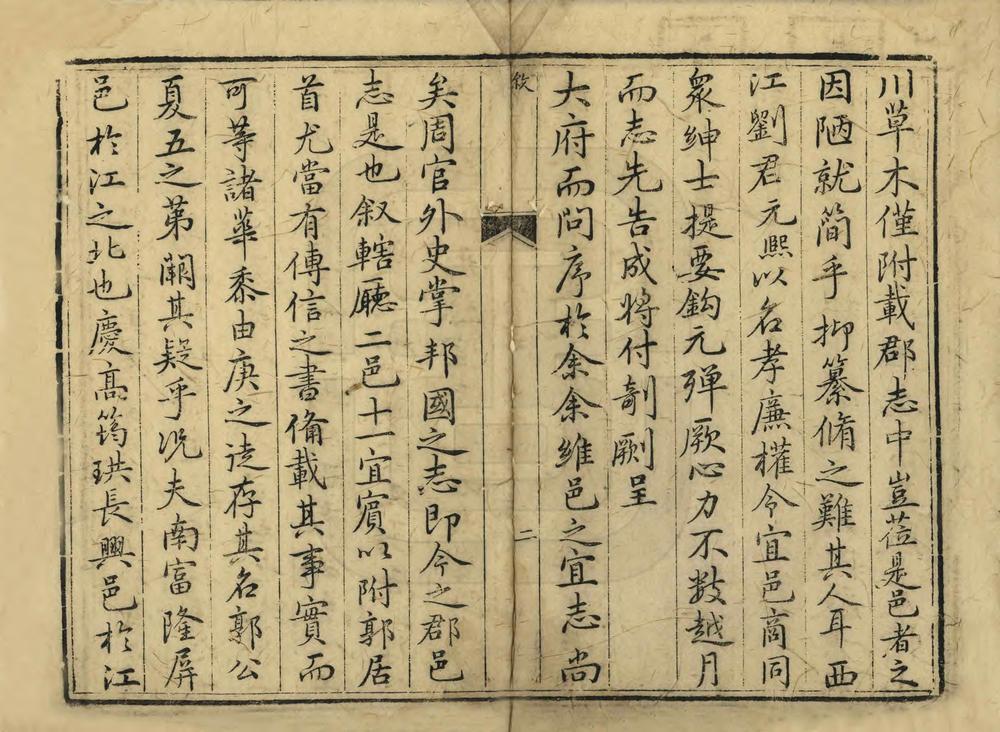 川草木僅附載郡志中豈蒞是邑者之
因陋就簡乎抑纂脩之難其人耳西
江劉君元熙以名孝廉權令宜邑商同
衆紳士提要鈎元殫厥心力不数越月
而志先告成將付剞劂呈
大府而問序於余余維邑之宜志尚
敘
二
矣周官外史掌邦國之志即今之郡邑
志是也叙轄廳二邑十一宜賓以附郭居
首尤當有傳信之書備載其事實而
可等諸華黍由庚之徒存其名郭公
夏五之第闕其疑乎况夫南富隆屏
邑於江之北也慶高筠珙長興邑於江